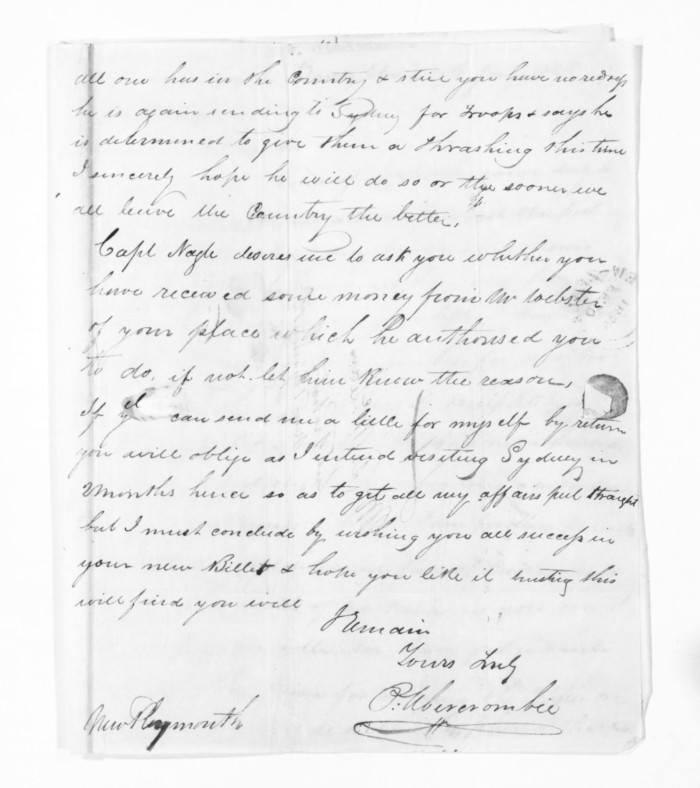 all one has in the Country & still you have no redress
he is again sending to Sydney for Troops & says he
is determined to give them a thrashing this time
I sincerely hope he will do so or the sooner we
all leave the Country the better,
Capt Nagle desires me to ask you whether you
have received some money from Mr Webster
of your place which he authorised you
to do, if not let him know the reason,
If yo can send me a little for myself by return
you will oblige as I intend visiting Sydney in
2 months hence so as to get all my affairs put straight
but I must conclude by wishing you all success in
your new Billet & hope you like it trusting this
will find you well
I remain
Yours Truly
P. Abercrombie
New Plymouth